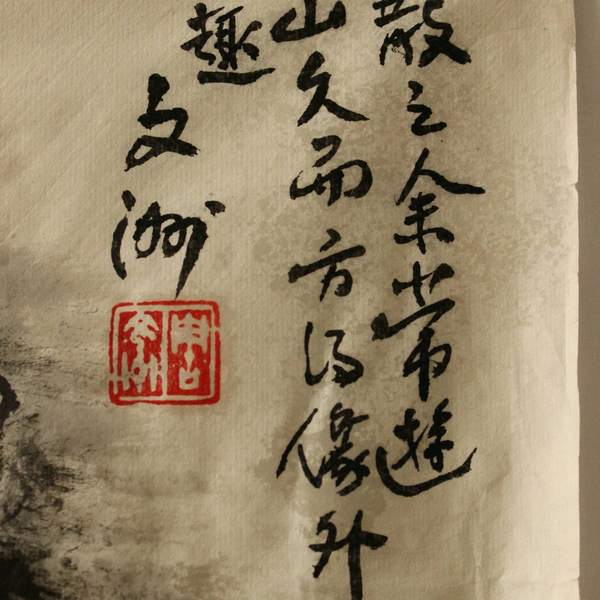 散之余常遊
山久而方得像外
趣
文洲